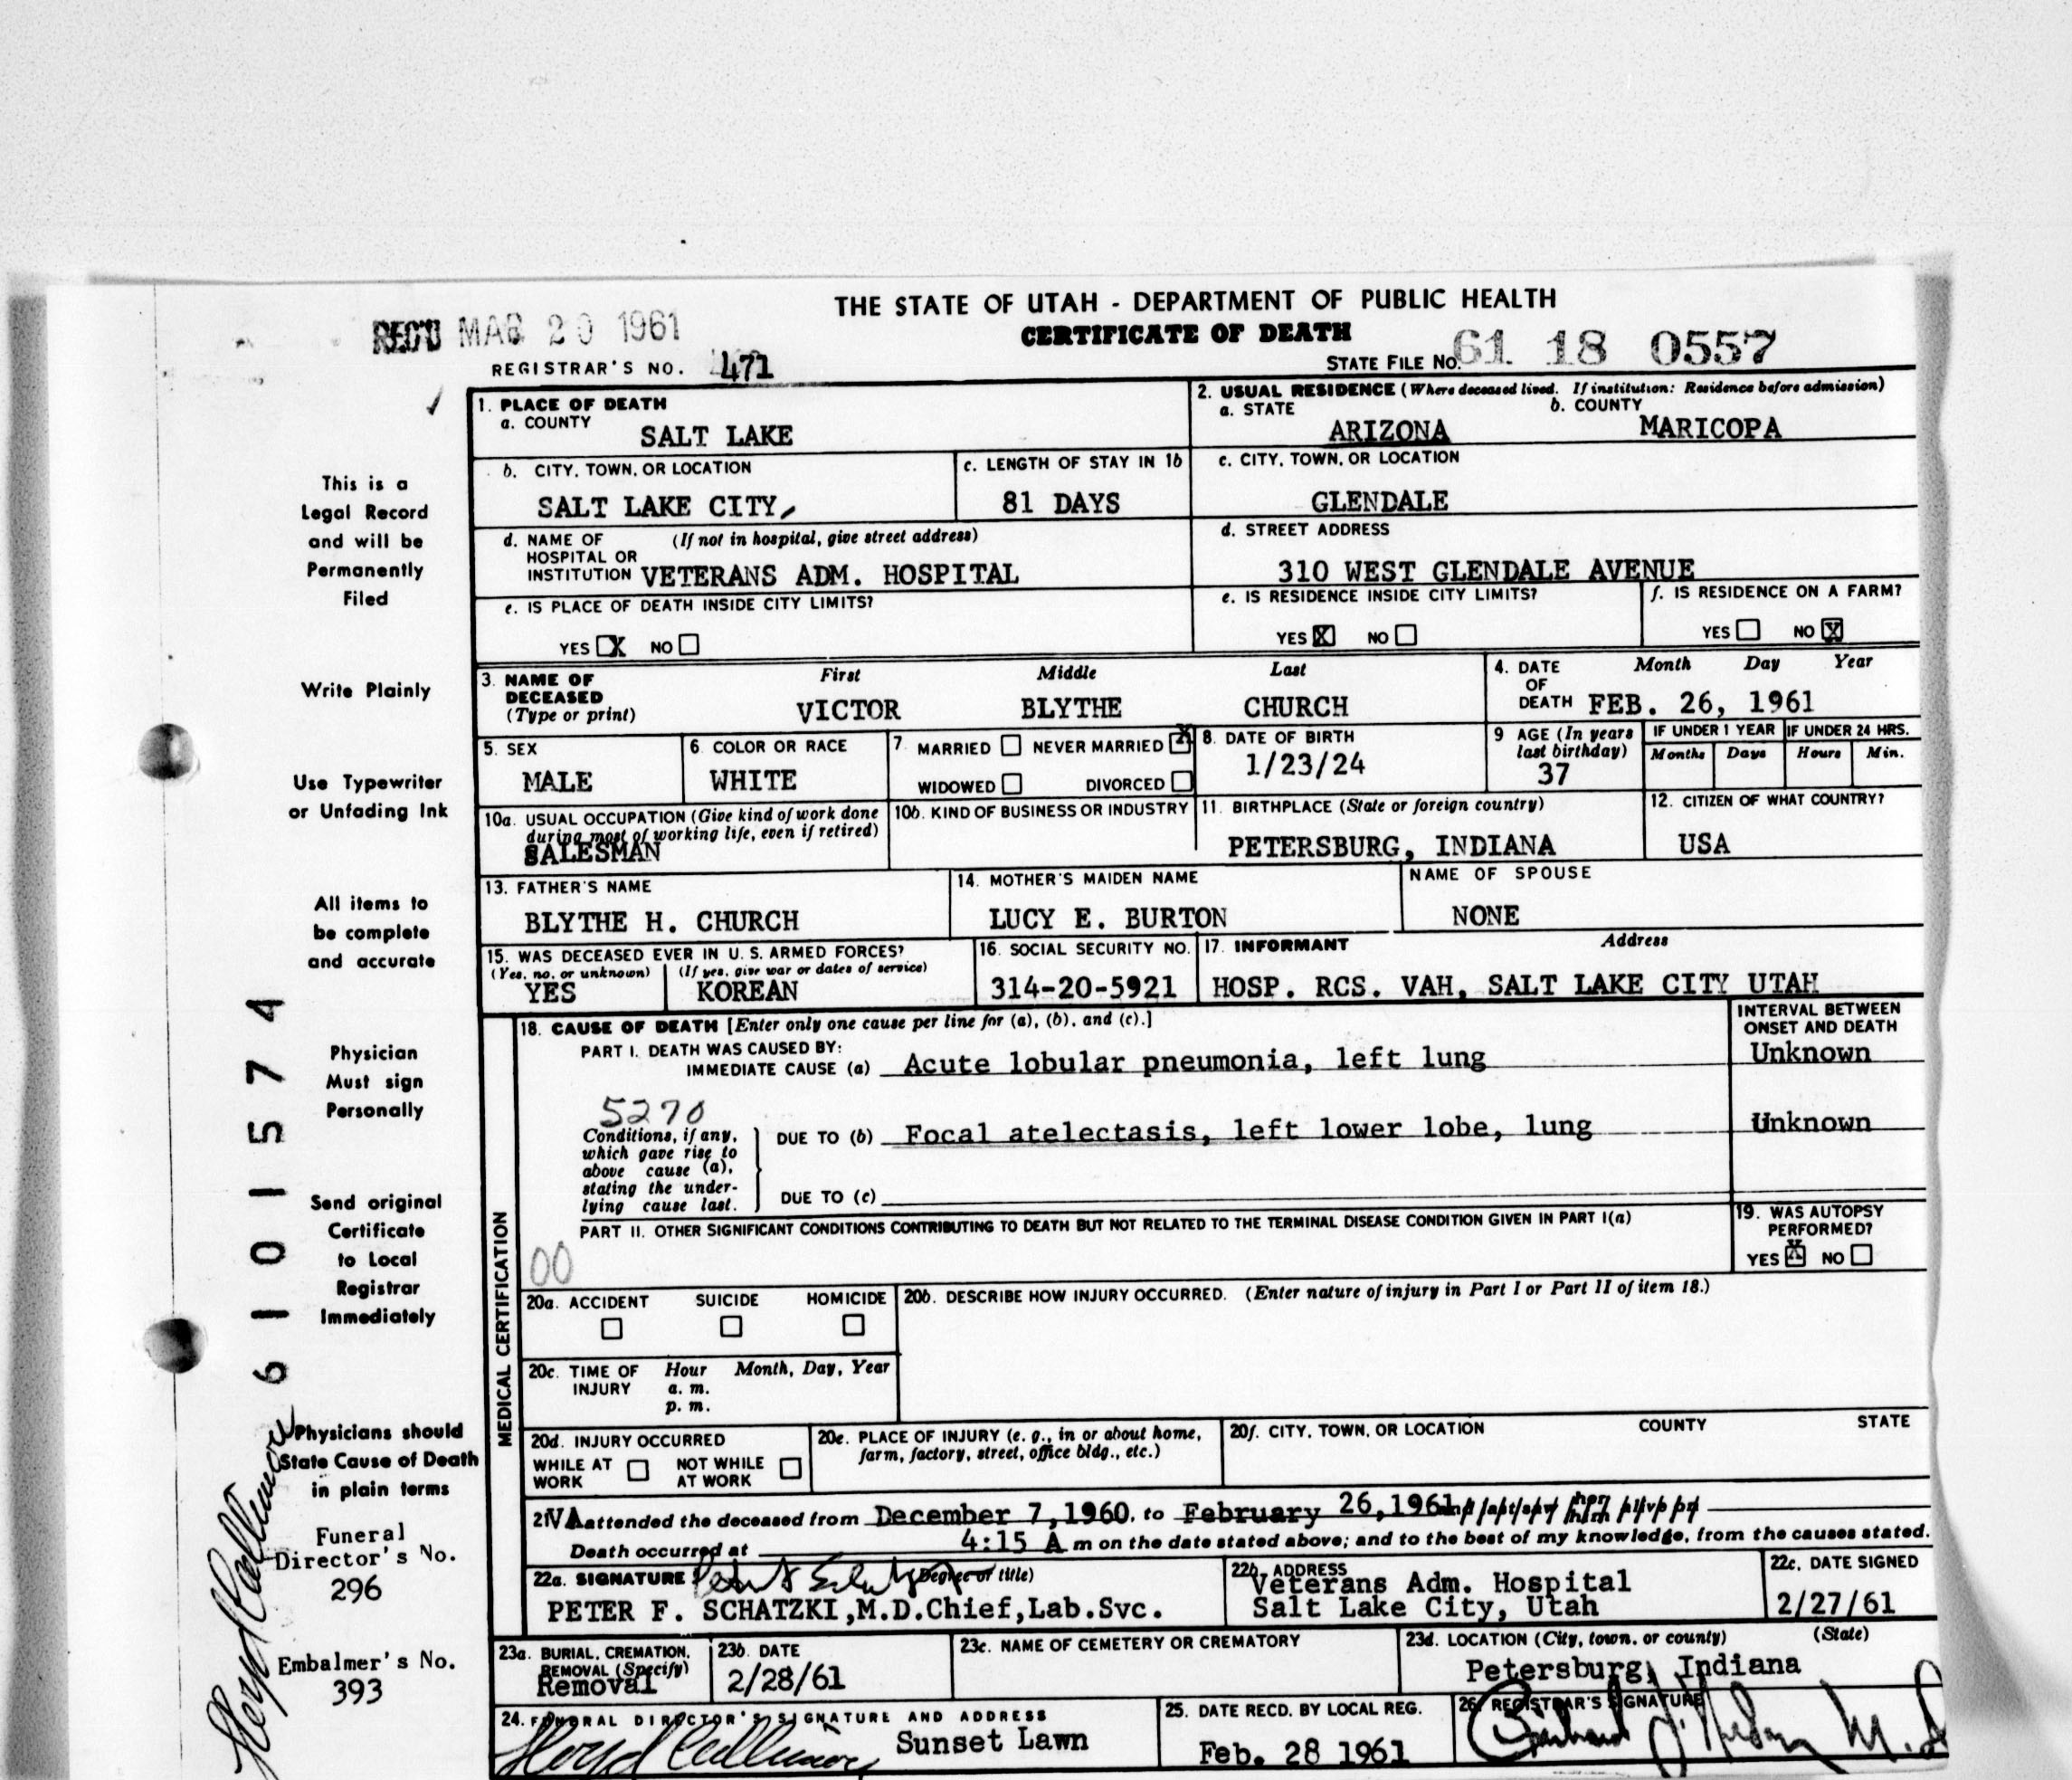 THE STATE OF UTAH - DEPARTMENT OF PUBLIC HEALTH
REC'D MAR 20 1961
CERTIFICATE OF DEATH
REGISTRAR'S NO. 471
STATE FILE NO. 61 18 0557
1. PLACE OF DEATH
a. COUNTY
SALT LAKE
2. USUAL RESIDENCE (Where deceased lived. If institution: Residence before admission)
a. STATE b. COUNTY
ARIZONA MARICOPA
b. CITY, TOWN, OR LOCATION
SALT LAKE CITY,
c. LENGTH OF STAY IN 1b
81 DAYS
c. CITY, TOWN, OR LOCATION
GLENDALE
d. NAME OF (If not in hospital, give street address)
HOSPITAL OR
INSTITUTION VETERANS ADM. HOSPITAL
d. STREET ADDRESS
310 WEST GLENDALE AVENUE
e. IS PLACE OF DEATH INSIDE CITY LIMITS?
YES X NO
e. IS RESIDENCE INSIDE CITY LIMITS?
YES X NO
f. IS RESIDENCE ON A FARM?
YES NO X
3. NAME OF DECEASED (Type or print)
First Middle Last
VICTOR BLYTHE CHURCH
4. DATE OF DEATH
Month Day Year
FEB. 26, 1961
5. SEX
MALE
6. COLOR OR RACE
WHITE
7. MARRIED NEVER MARRIED X
WIDOWED DIVORCED
8. DATE OF BIRTH
1/23/24
9 AGE (In years last birthday)
37
IF UNDER 1 YEAR IF UNDER 24 HRS.
Months Days Hours Min.
10a. USUAL OCCUPATION (Give kind of work done
during most of working life, even if retired)
SALESMAN
10b. KIND OF BUSINESS OR INDUSTRY
11. BIRTHPLACE (State or foreign country)
PETERSBURG, INDIANA
12. CITIZEN OF WHAT COUNTRY?
USA
13. FATHER'S NAME
BLYTHE H. CHURCH
14. MOTHER'S MAIDEN NAME
LUCY E. BURTON
NAME OF SPOUSE
NONE
15. WAS DECEASED EVER IN U. S. ARMED FORCES?
(Yes, no, or unknown) (If yes, give war or dates of service)
YES KOREAN
16. SOCIAL SECURITY NO.
314-20-5921
17. INFORMANT Address
HOSP. RCS. VAH, SALT LAKE CITY UTAH
MEDICAL CERTIFICATION
18. CAUSE OF DEATH [Enter only one cause per line for (a), (b), and (c).]
INTERVAL BETWEEN
ONSET AND DEATH
PART I. DEATH WAS CAUSED BY:
IMMEDIATE CAUSE (a) Acute lobular pneumonia, left lung Unknown
5270
Conditions, if any,
which gave rise to
above cause (a),
stating the under-
lying cause last.
DUE TO (b) Focal atelectasis, left lower lobe, lung Unknown
DUE TO (c)
PART II. OTHER SIGNIFICANT CONDITIONS CONTRIBUTING TO DEATH BUT NOT RELATED TO THE TERMINAL DISEASE CONDITION GIVEN IN PART I(a)
00
19. WAS AUTOPSY
PERFORMED?
YES X NO
20a. ACCIDENT SUICIDE HOMICIDE
20b. DESCRIBE HOW INJURY OCCURRED. (Enter nature of injury in Part I or Part II of item 18.)
20c. TIME OF INJURY
Hour Month, Day, Year
a. m.
p. m.
20d. INJURY OCCURRED
WHILE AT WORK NOT WHILE AT WORK
20e. PLACE OF INJURY (e. g., in or about home,
farm, factory, street, office bldg., etc.)
20f. CITY, TOWN, OR LOCATION COUNTY STATE
21. VA attended the deceased from December 7, 1960, to February 26, 1961
Death occurred at 4:15 A m on the date stated above; and to the best of my knowledge, from the causes stated.
22a. SIGNATURE (Degree or title)
PETER F. SCHATZKI, M.D. Chief, Lab. Svc.
22b. ADDRESS
Veterans Adm. Hospital
Salt Lake City, Utah
22c. DATE SIGNED
2/27/61
23a. BURIAL, CREMATION,
REMOVAL (Specify)
Removal
23b. DATE
2/28/61
23c. NAME OF CEMETERY OR CREMATORY
23d. LOCATION (City, town, or county) (State)
Petersburg, Indiana
24. FUNERAL DIRECTOR'S SIGNATURE AND ADDRESS
Sunset Lawn
25. DATE RECD. BY LOCAL REG.
Feb. 28 1961
26. REGISTRAR'S SIGNATURE
This is a
Legal Record
and will be
Permanently
Filed
Write Plainly
Use Typewriter
or Unfading Ink
All items to
be complete
and accurate
Physician
Must sign
Personally
Send original
Certificate
to Local
Registrar
Immediately
Physicians should
State Cause of Death
in plain terms
Funeral
Director's No.
296
Embalmer's No.
393
6101574